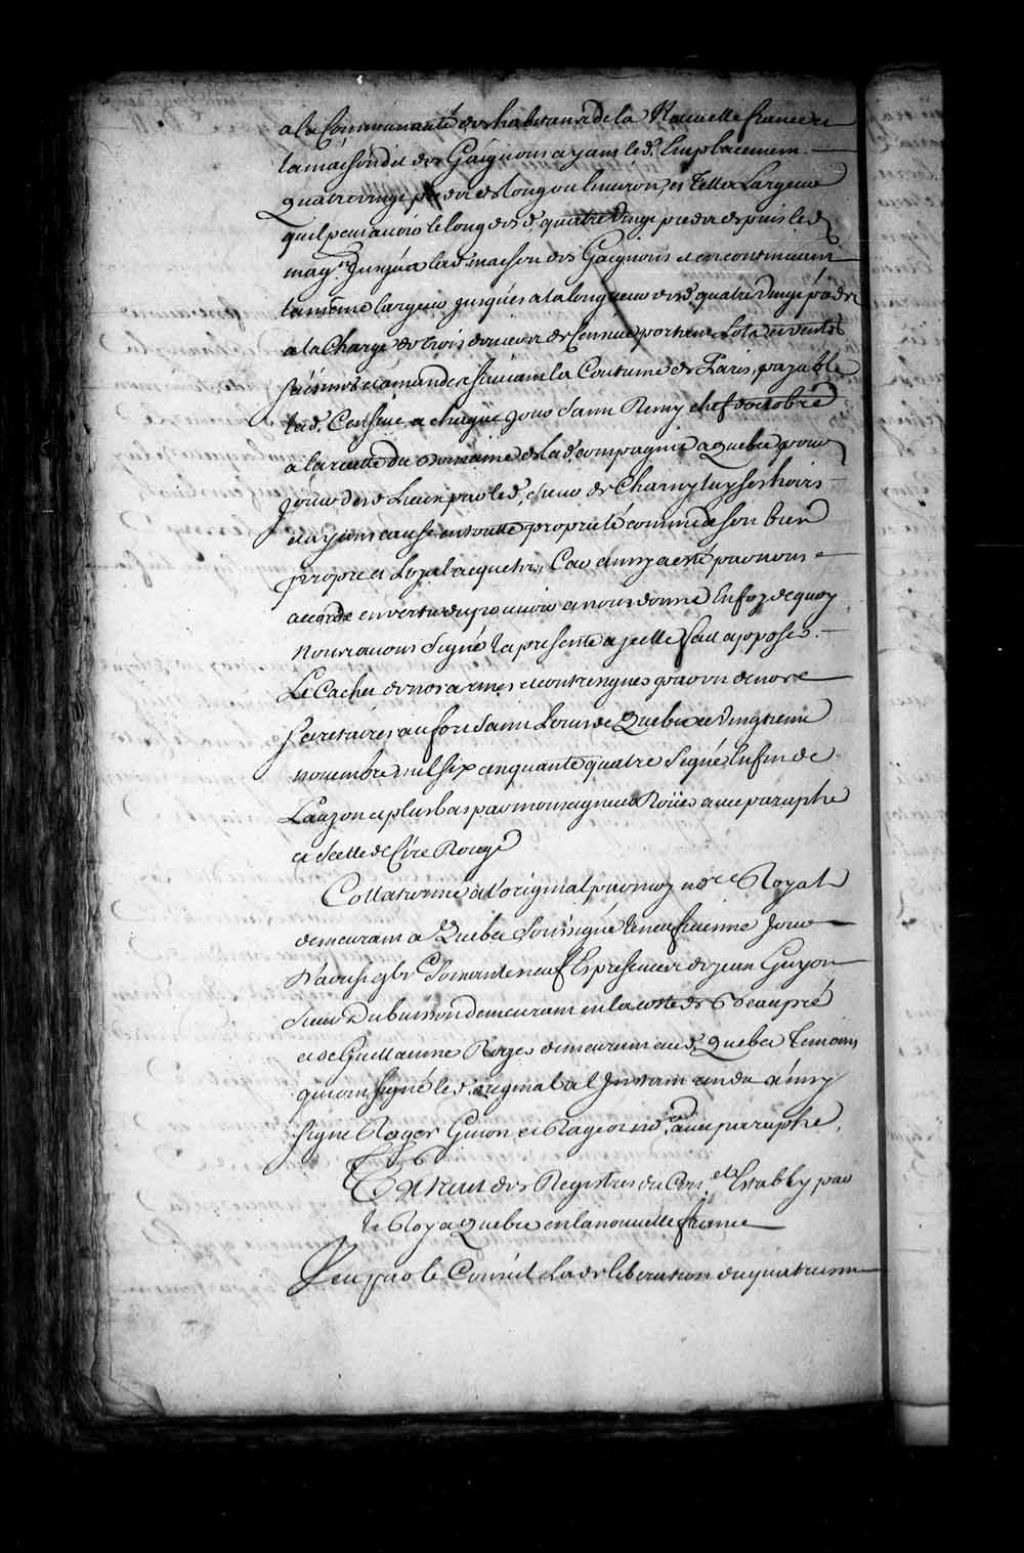 a la Communauté des habitans de la Nouvelle france et
la maison dit des Gaignons ayant led. Emplacement
Quatre vingt pieds de long ou Environ, et telle Largeur
quil peut avoir le long desd. quatre vingt pieds depuis led.
mag.^n Jusqu'a lad. maison des Gaignons et en continuant
la même largeur jusques a la longueur desd. quatre vingt pieds
a la Charge de trois deniers de Censive portant Lots et ventes
saisines et amandes suivant la Coutume de Paris, payable
lad. Censive a chaque jour Saint Remy chef doctobre
a la recette du Domaine de lad. compagnie a Quebec pour
jouir desd. Lieux par led. sieur de Charny luy ses hoirs
et ayans cause en toutte proprieté comme de son bien
propre et Loyal acquets, Car ainsy a esté par nous
accordé en vertu du pouvoir a nous donné En foy de quoy
Nous avons Signé la presente a jcelle fait apposer
Le Cachet de nos armes et contresigner par un de nos
Secretaires au fort Saint Louis de Quebec ce vingtieme
novembre mil six cinquante quatre Signé Enfin de
Lauzon et plus bas par monseigneur Roüer avec paraphe
et Scellé de Cire Rouge
Collationné a l'original par moy no^re Royal
demeurant a Quebec Soussigné le neufvieme jour
d'aoust gbi^c Soixante neuf Es presence de jean Guyon
Sieur Dubuisson demeurant en la coste de Beaupré
et de Guillaume Roger demeurant aud. Quebec temoins
qui ont signé led. original a l'Jnstant rendu ainsy
signé Roger Guion et Rageot no.^re avec paraphe.
Extrait des Registres du Con.^eil Estably par
le Roy a Quebec en la nouvelle france
Veu par le Conseil La deliberation du quatrieme